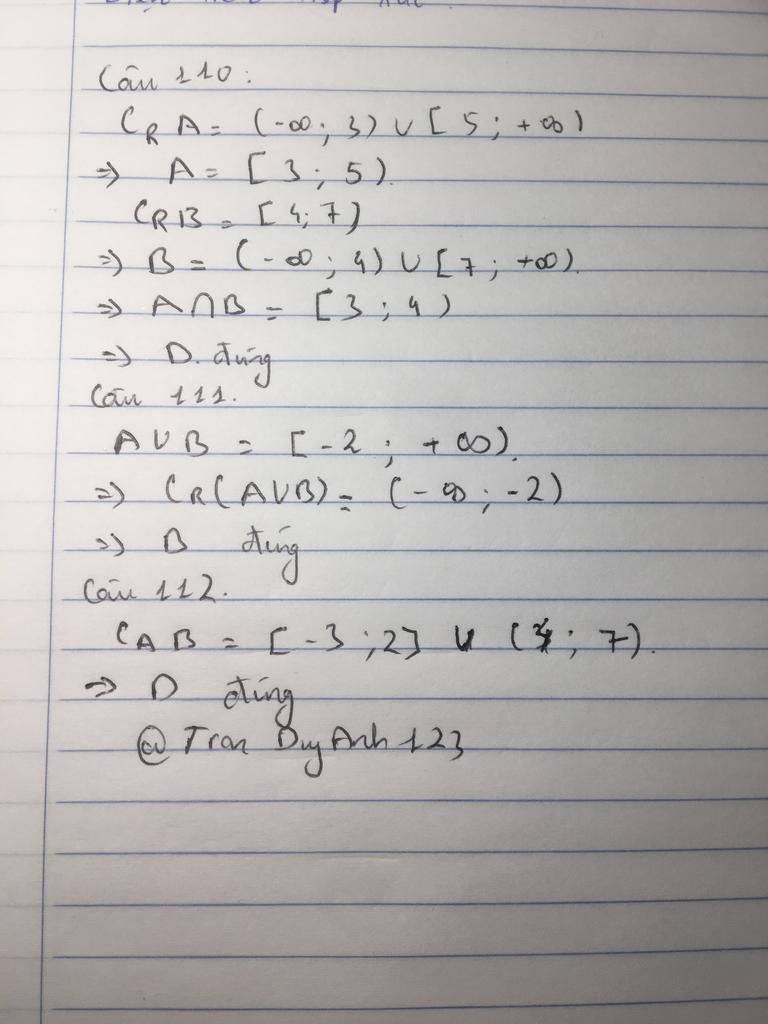 Câu 110:
C_R A = (-∞; 3) ∪ [5; +∞)
=> A = [3; 5).
C_R B = [4; 7)
=> B = (-∞; 4) ∪ [7; +∞).
=> A∩B = [3; 4)
=> D. đúng
Câu 111.
A∪B = [-2; +∞).
=> C_R(A∪B) = (-∞; -2)
=> B đúng
Câu 112.
C_A B = [-3; 2] ∪ ( ; 7).
=> D đúng
@Tran Duy Anh 123